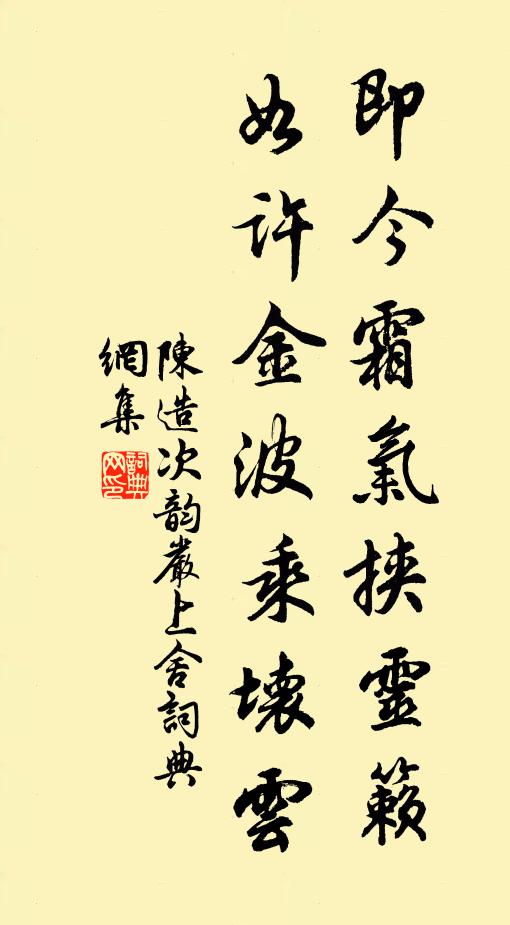 即今霜氣挾靈籟
如許金波乘壞雲
陳造次韵嚴上舍詞典
網集
詞典网印